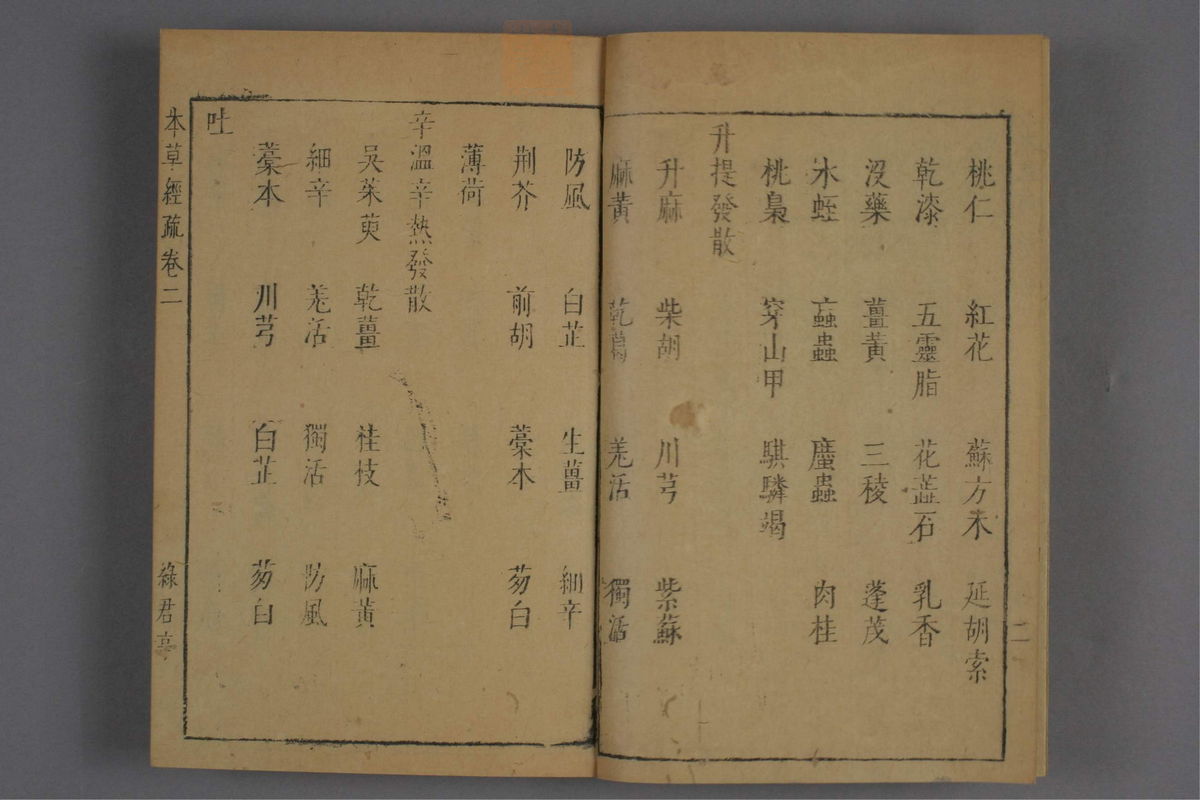 桃仁 紅花 蘇方木 延胡索
乾漆 五靈脂 花蕋石 乳香
沒藥 薑黃 三稜 蓬茂
水蛭 蝱蟲 䗪蟲 肉桂
桃梟 穿山甲 騏驎竭
升提發散
升麻 柴胡 川芎 紫蘇
麻黃 乾葛 羌活 獨活
防風 白芷 生薑 細辛
荆芥 前胡 藁本 葱白
薄荷
辛溫辛熱發散
吳茱萸 乾薑 桂枝 麻黃
細辛 羌活 獨活 防風
藁本 川芎 白芷 葱白
吐
本草經疏卷二 綠君亭
二